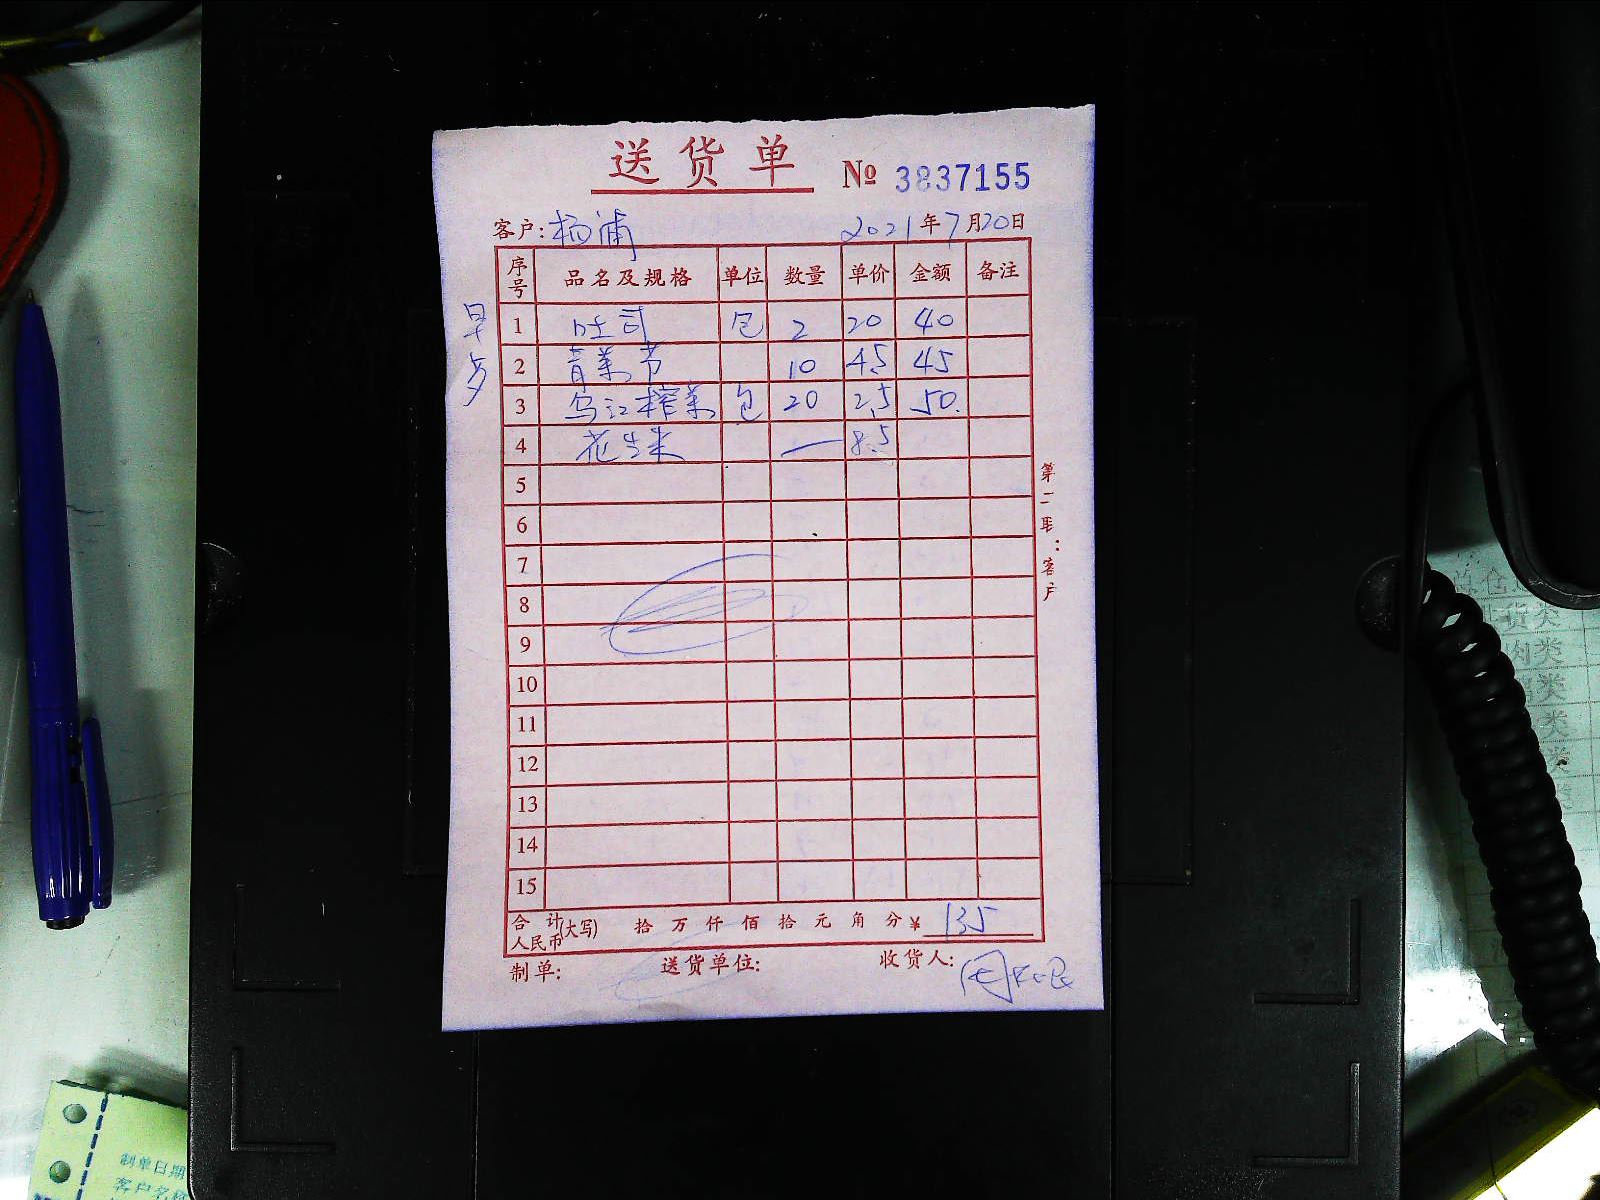 送货单 № 3837155
客户: 杨浦 2021年7月20日
早
点
序号 品名及规格 单位 数量 单价 金额 备注
1 吐司 包 2 20 40
2 青菜 10 4.5 45
3 乌江榨菜 包 20 2.5 50.
4 花生米 — 8.5
5
6
7
8
9
10
11
12
13
14
15
合计人民币(大写) 拾 万 仟 佰 拾 元 角 分 ¥ 135
制单: 送货单位: 收货人:
第二联:客户
单位
货类
肉类
类
类
类
类
制单日期
客户名称